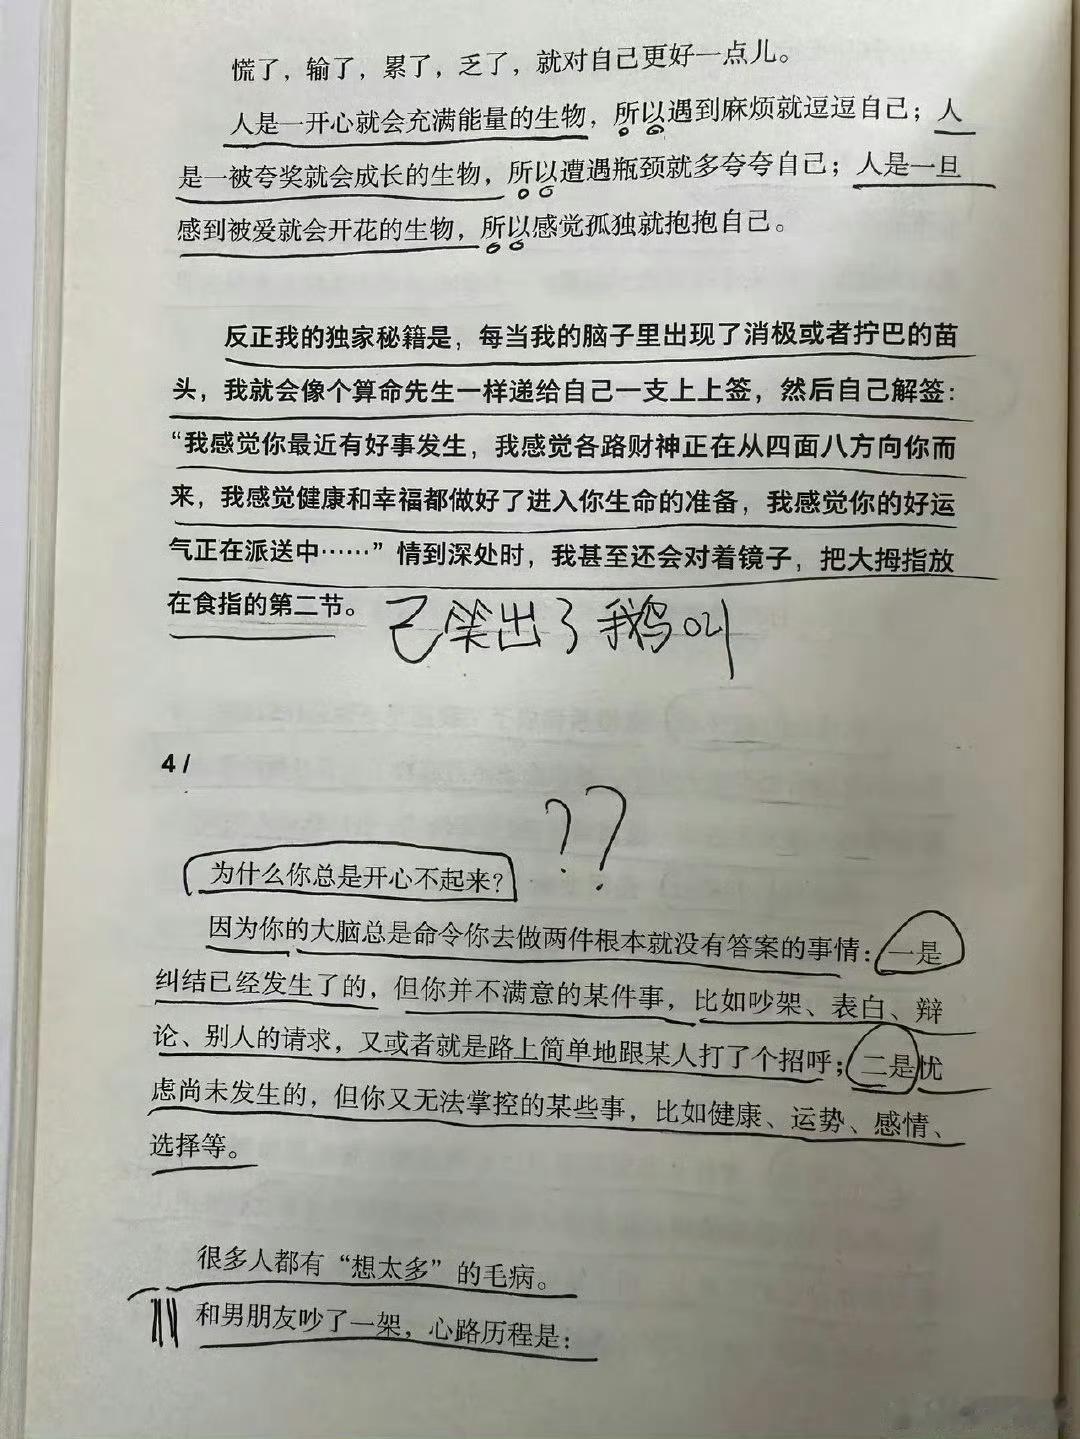 慌了，输了，累了，乏了，就对自己更好一点儿。
人是一开心就会充满能量的生物，所以遇到麻烦就逗逗自己；人
是一被夸奖就会成长的生物，所以遭遇瓶颈就多夸夸自己；人是一旦
感到被爱就会开花的生物，所以感觉孤独就抱抱自己。
反正我的独家秘籍是，每当我的脑子里出现了消极或者拧巴的苗
头，我就会像个算命先生一样递给自己一支上上签，然后自己解签：
“我感觉你最近有好事发生，我感觉各路财神正在从四面八方向你而
来，我感觉健康和幸福都做好了进入你生命的准备，我感觉你的好运
气正在派送中……”情到深处时，我甚至还会对着镜子，把大拇指放
在食指的第二节。
已笑出了鹅叫
4 /
??
为什么你总是开心不起来？
因为你的大脑总是命令你去做两件根本就没有答案的事情：一是
纠结已经发生了的，但你并不满意的某件事，比如吵架、表白、辩
论、别人的请求，又或者就是路上简单地跟某人打了个招呼；二是忧
虑尚未发生的，但你又无法掌控的某些事，比如健康、运势、感情、
选择等。
很多人都有“想太多”的毛病。
和男朋友吵了一架，心路历程是：